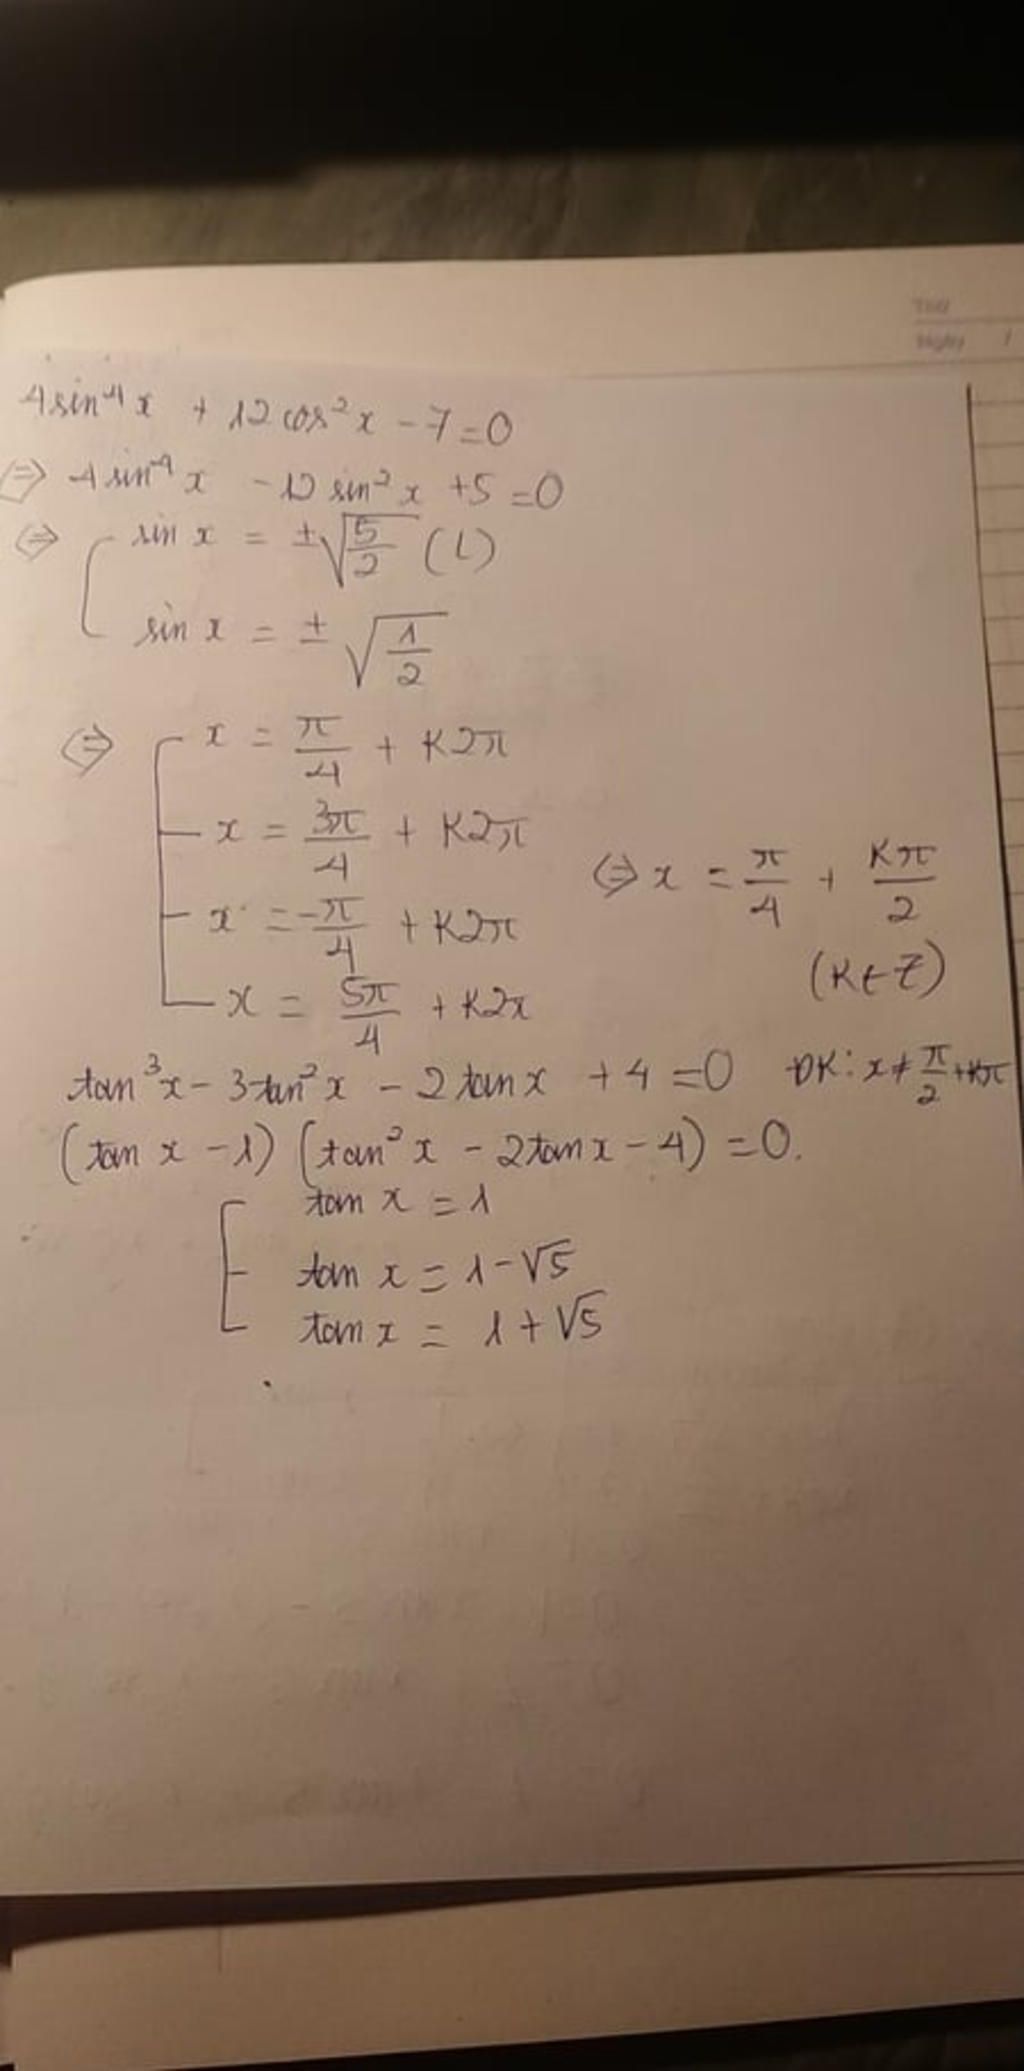 Thứ
Ngày
4sin⁴x + 12cos²x - 7 = 0
⇔ 4sin⁴x - 12sin²x + 5 = 0
⇔ [ sin x = ±√(5/2) (L)
sin x = ±√(1/2)
⇔ [ x = π/4 + K2π
x = 3π/4 + K2π
⇔ x = π/4 + Kπ/2
x = -π/4 + K2π
(K∈Z)
x = 5π/4 + K2π
tan³x - 3tan²x - 2tanx + 4 = 0 ĐK: x ≠ π/2 + Kπ
(tan x - 1)(tan²x - 2tanx - 4) = 0.
[ tan x = 1
tan x = 1 - √5
tan x = 1 + √5